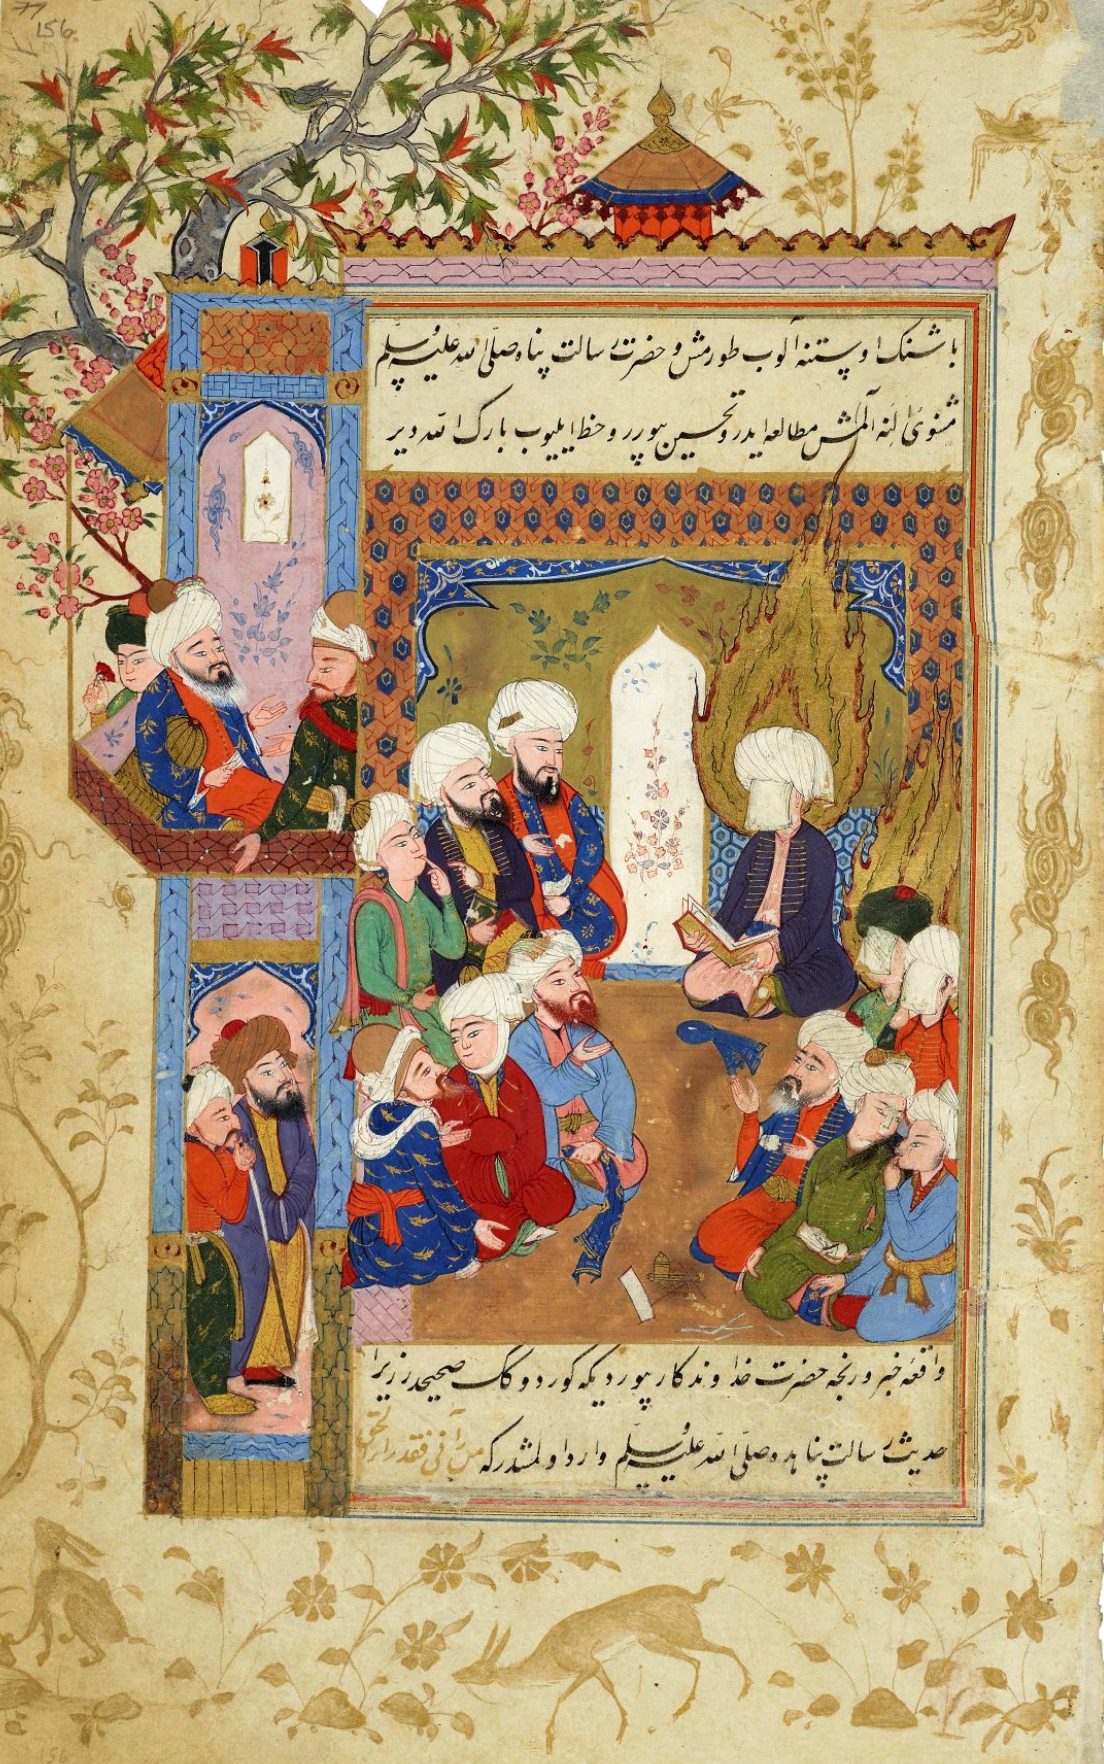 156
باشنك اوستنه آلوب طورمش و حضرت رسالت پناه صلّى الله عليه وسلّم
مثنوى النه آلمش مطالعه ايدر و تحسين بيورر و حظ ايليوب بارك الله دير
واقعه خبر ورنجه حضرت خداوندكار بيورديكه كوردوكك صحيحدر زيرا
حديث رسالت پناهده صلّى الله عليه وسلّم وارد اولمشدركه من رآنى فقد راى الحق
156